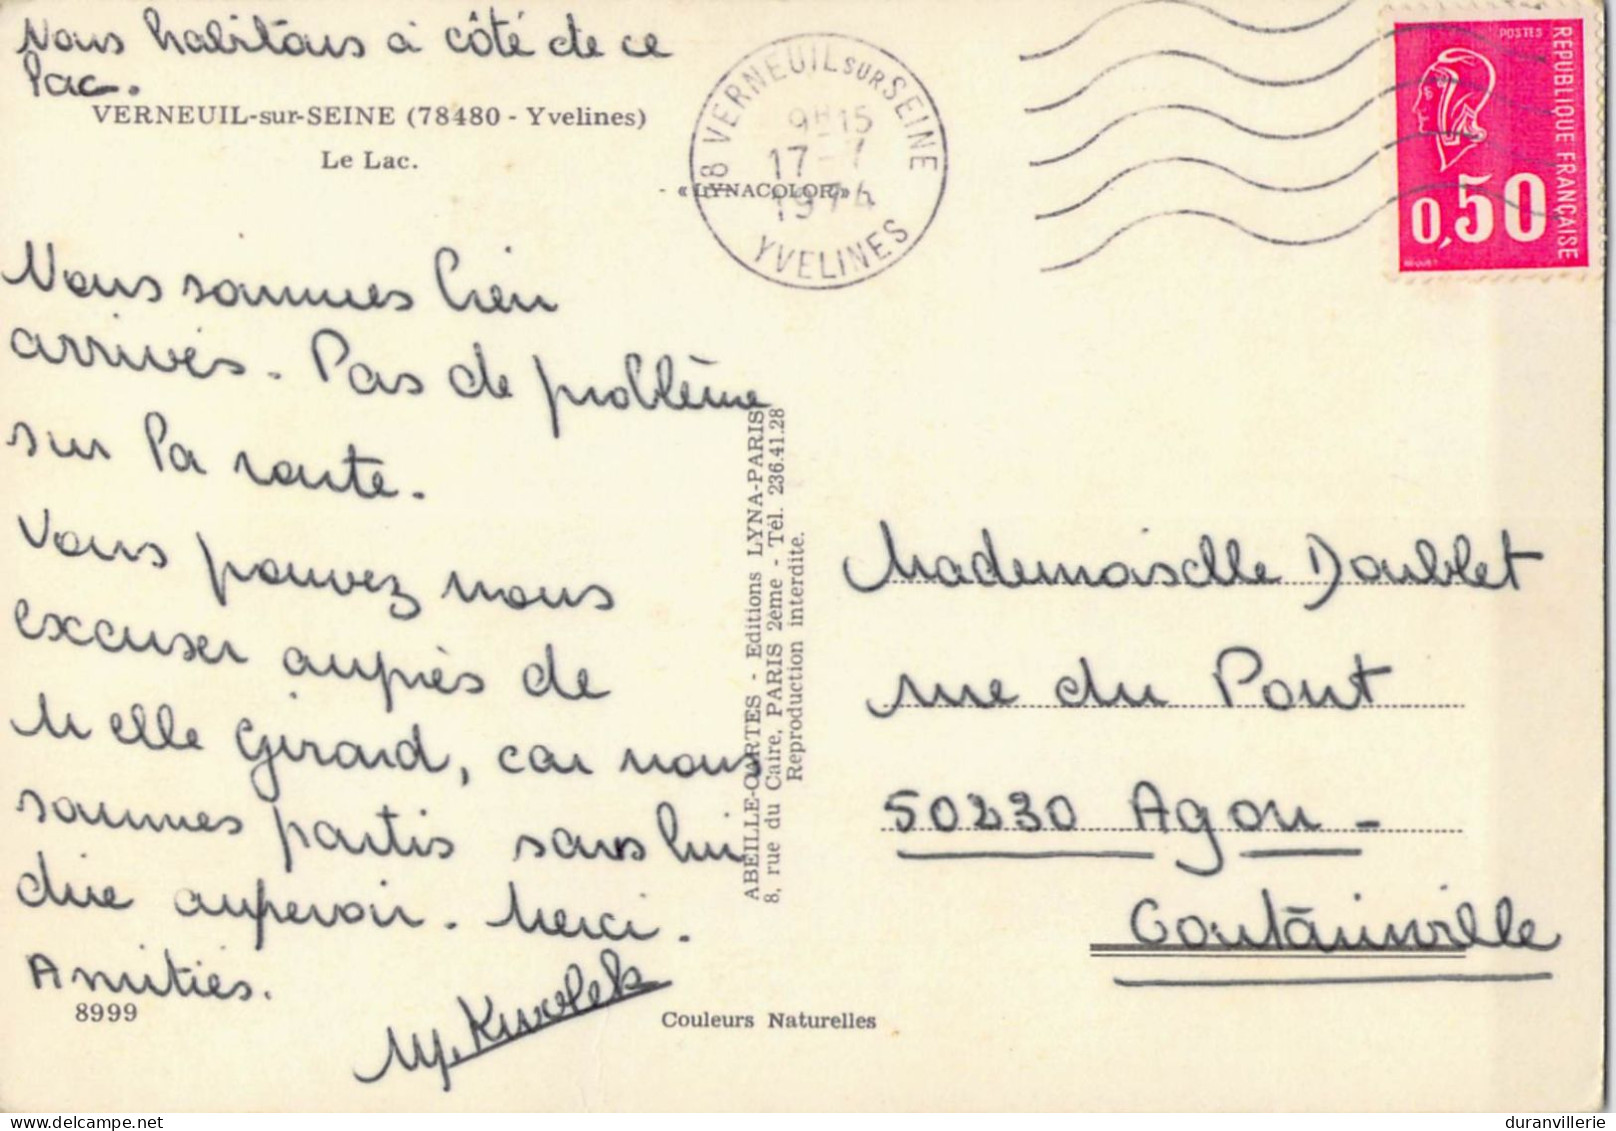 Nous habitons à côté de ce
lac.
VERNEUIL-sur-SEINE (78480 - Yvelines)
Le Lac.
- « LYNACOLOR »
78 VERNEUIL SUR SEINE
9H15
17-7
1974
YVELINES
POSTES
REPUBLIQUE FRANÇAISE
0,50
Nous sommes bien
arrivés. Pas de problème
sur la route.
Vous pouvez nous
excuser auprès de
Melle Girard, car nous
sommes partis sans lui
dire aurevoir. Merci.
Amitiés.
My. Kwolek
8999
ABEILLE-CARTES - Editions LYNA-PARIS
8, rue du Caire, PARIS 2eme - Tél. 236.41.28
Reproduction interdite.
Couleurs Naturelles
Mademoiselle Doublet
rue du Pont
50230 Agon-
Coutainville
duranvillerie